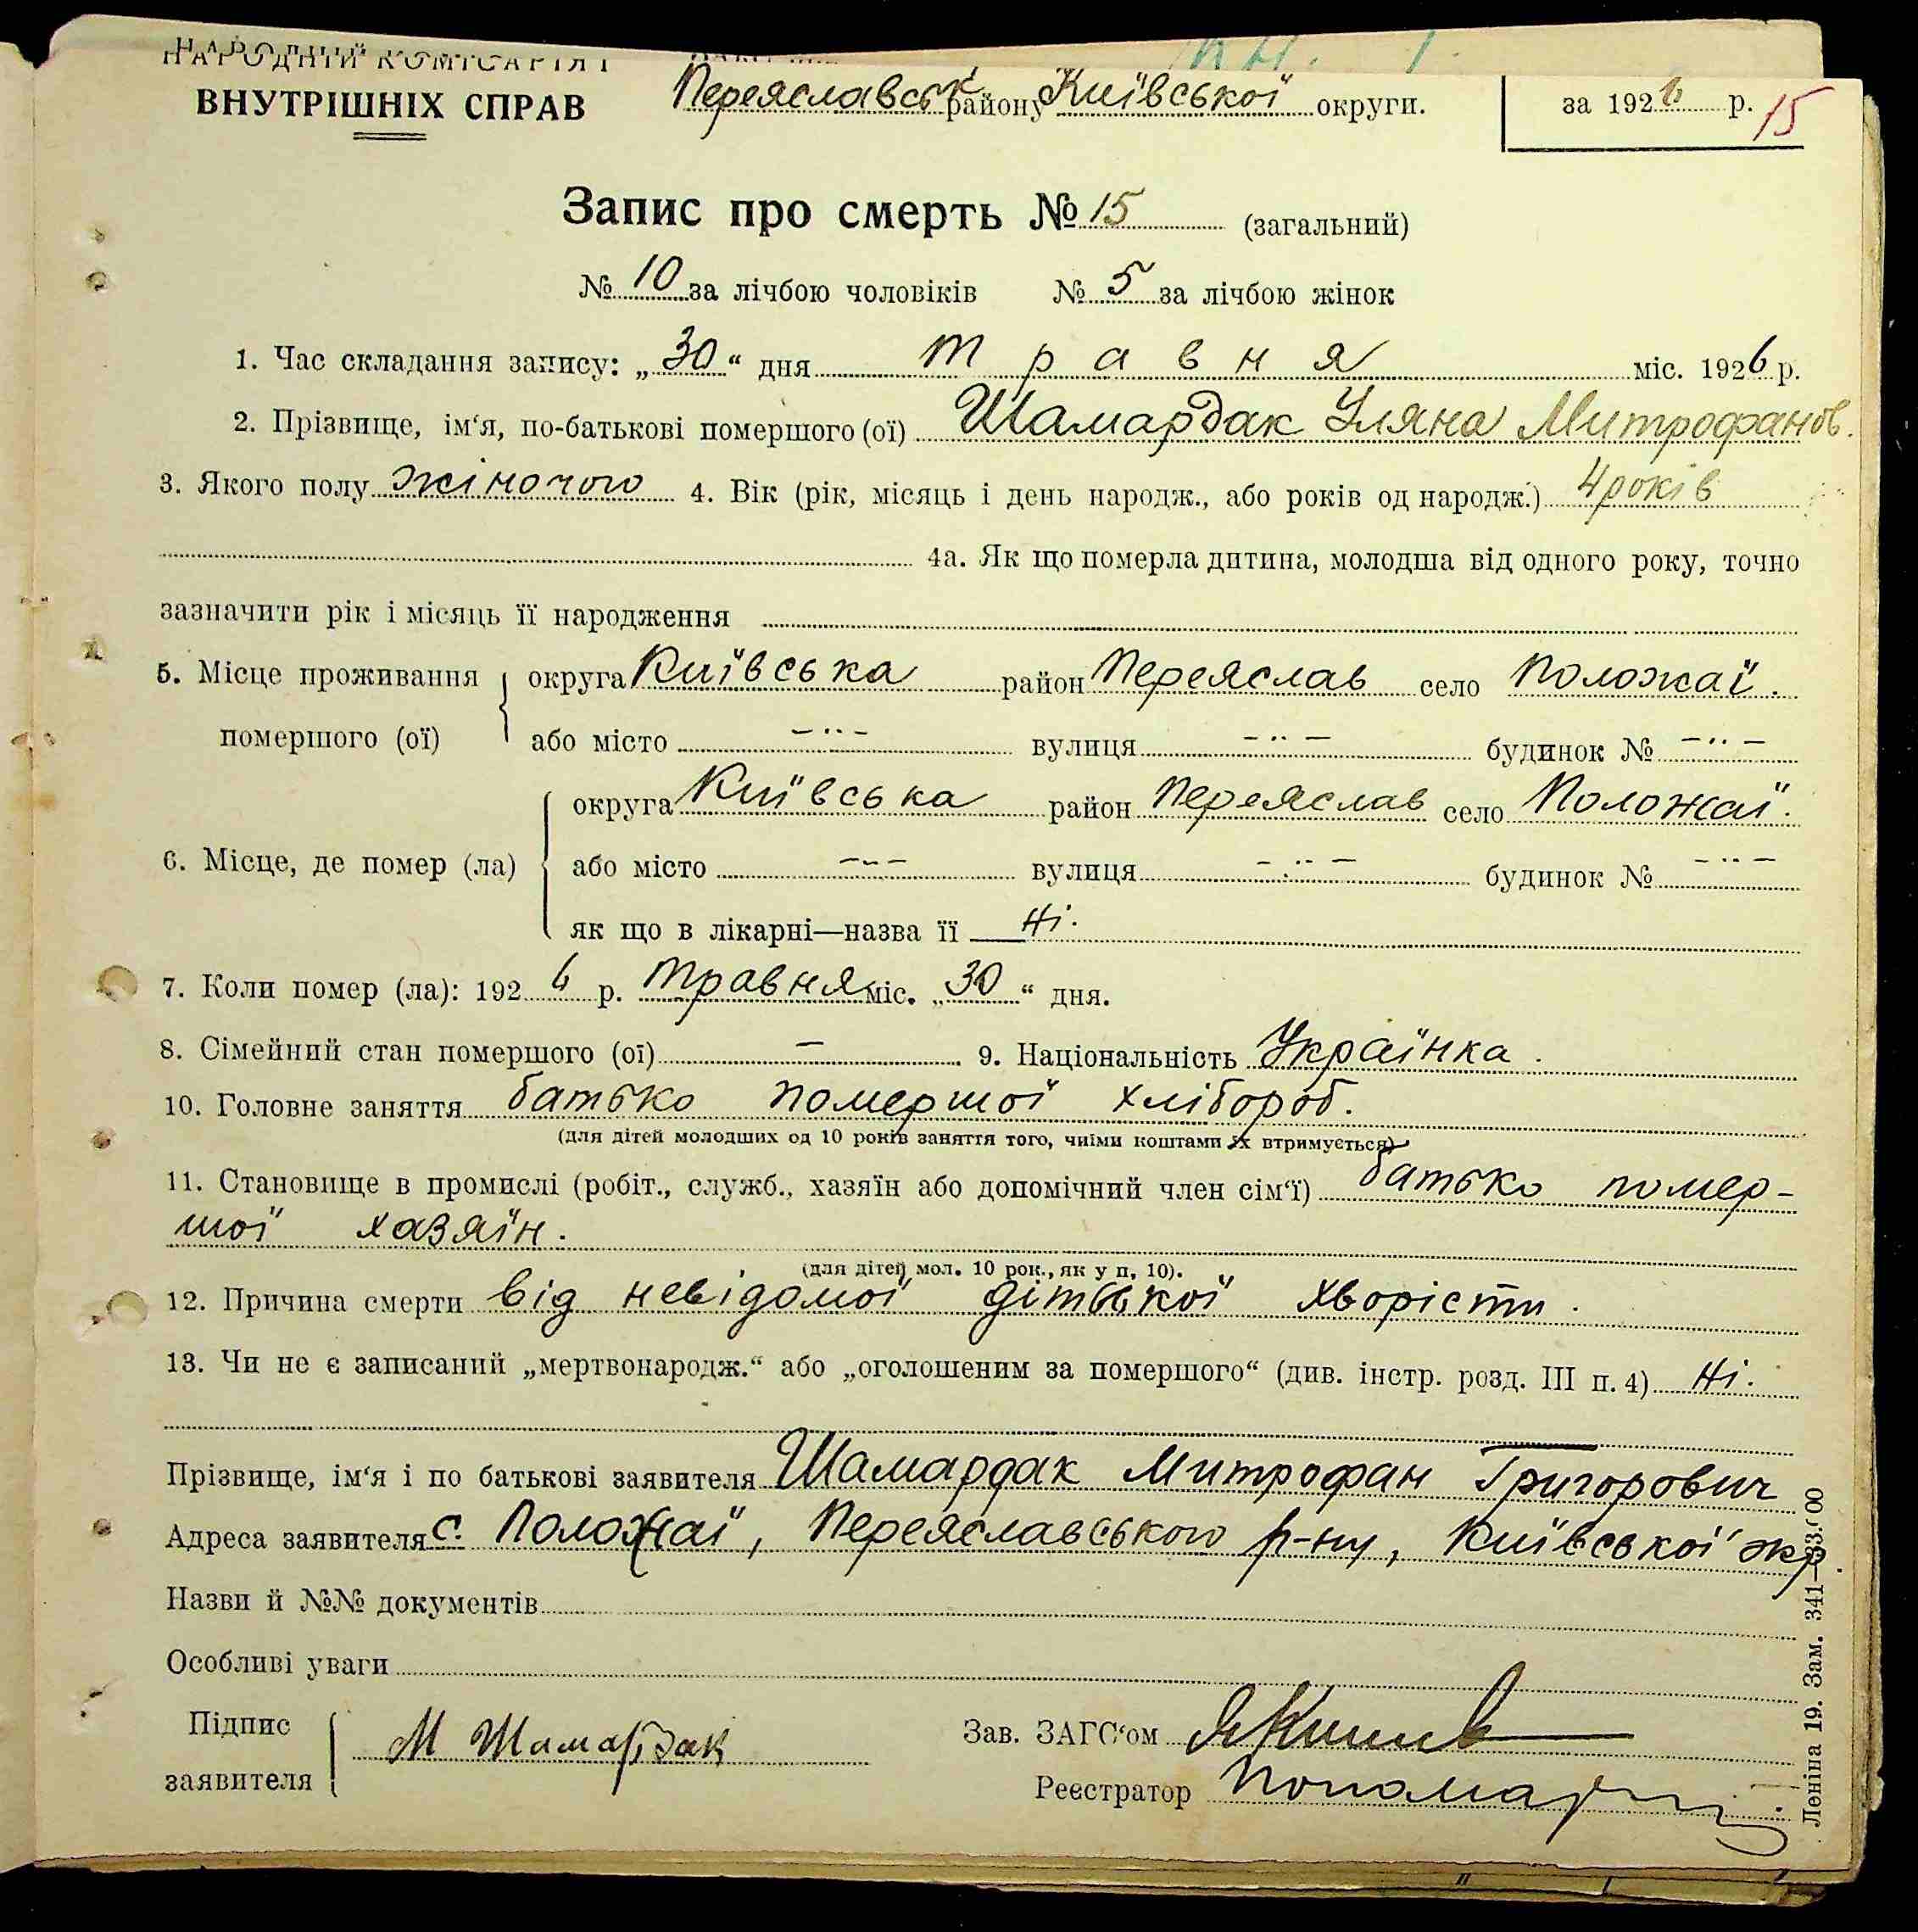 НАРОДНІЙ КОМІСАРІЯТ
ВНУТРІШНІХ СПРАВ Переяславськ району Київської округи. за 1926 р. 15
Запис про смерть № 15 (загальний)
№ 10 за лічбою чоловіків № 5 за лічбою жінок
1. Час складання запису: „30“ дня травня міс. 1926 р.
2. Прізвище, ім‘я, по-батькові помершого (ої) Шамардак Уляна Митрофанов.
3. Якого полу жіночого 4. Вік (рік, місяць і день народж., або років од народж.) 4 років
4а. Як що померла дитина, молодша від одного року, точно
зазначити рік і місяць її народження
5. Місце проживання округа Київська район Переяслав село Положаї.
помершого (ої) або місто -··- вулиця -··- будинок № -··-
округа Київська район Переяслав село Положаї.
6. Місце, де помер (ла) або місто -··- вулиця -··- будинок № -··-
як що в лікарні—назва її Ні.
7. Коли помер (ла): 1926 р. травня міс. „30“ дня.
8. Сімейний стан помершого (ої) — 9. Національність Українка.
10. Головне заняття батько помершої хлібороб.
(для дітей молодших од 10 років заняття того, чиїми коштами їх втримується)
11. Становище в промислі (робіт., служб., хазяїн або допомічний член сім‘ї) батько помер-
шої хазяїн.
(для дітей мол. 10 рок., як у п. 10).
12. Причина смерти від невідомої дітської хворісти.
13. Чи не є записаний „мертвонародж.“ або „оголошеним за помершого“ (див. інстр. розд. III п. 4) Ні.
Прізвище, ім‘я і по батькові заявителя Шамардак Митрофан Григорович
Адреса заявителя с. Положаї, Переяславського р-ну, Київської окр.
Назви й №№ документів
Особливі уваги
Підпис заявителя М Шамардак
Зав. ЗАГС‘ом
Реєстратор
Леніна 19. Зам. 341—33.000